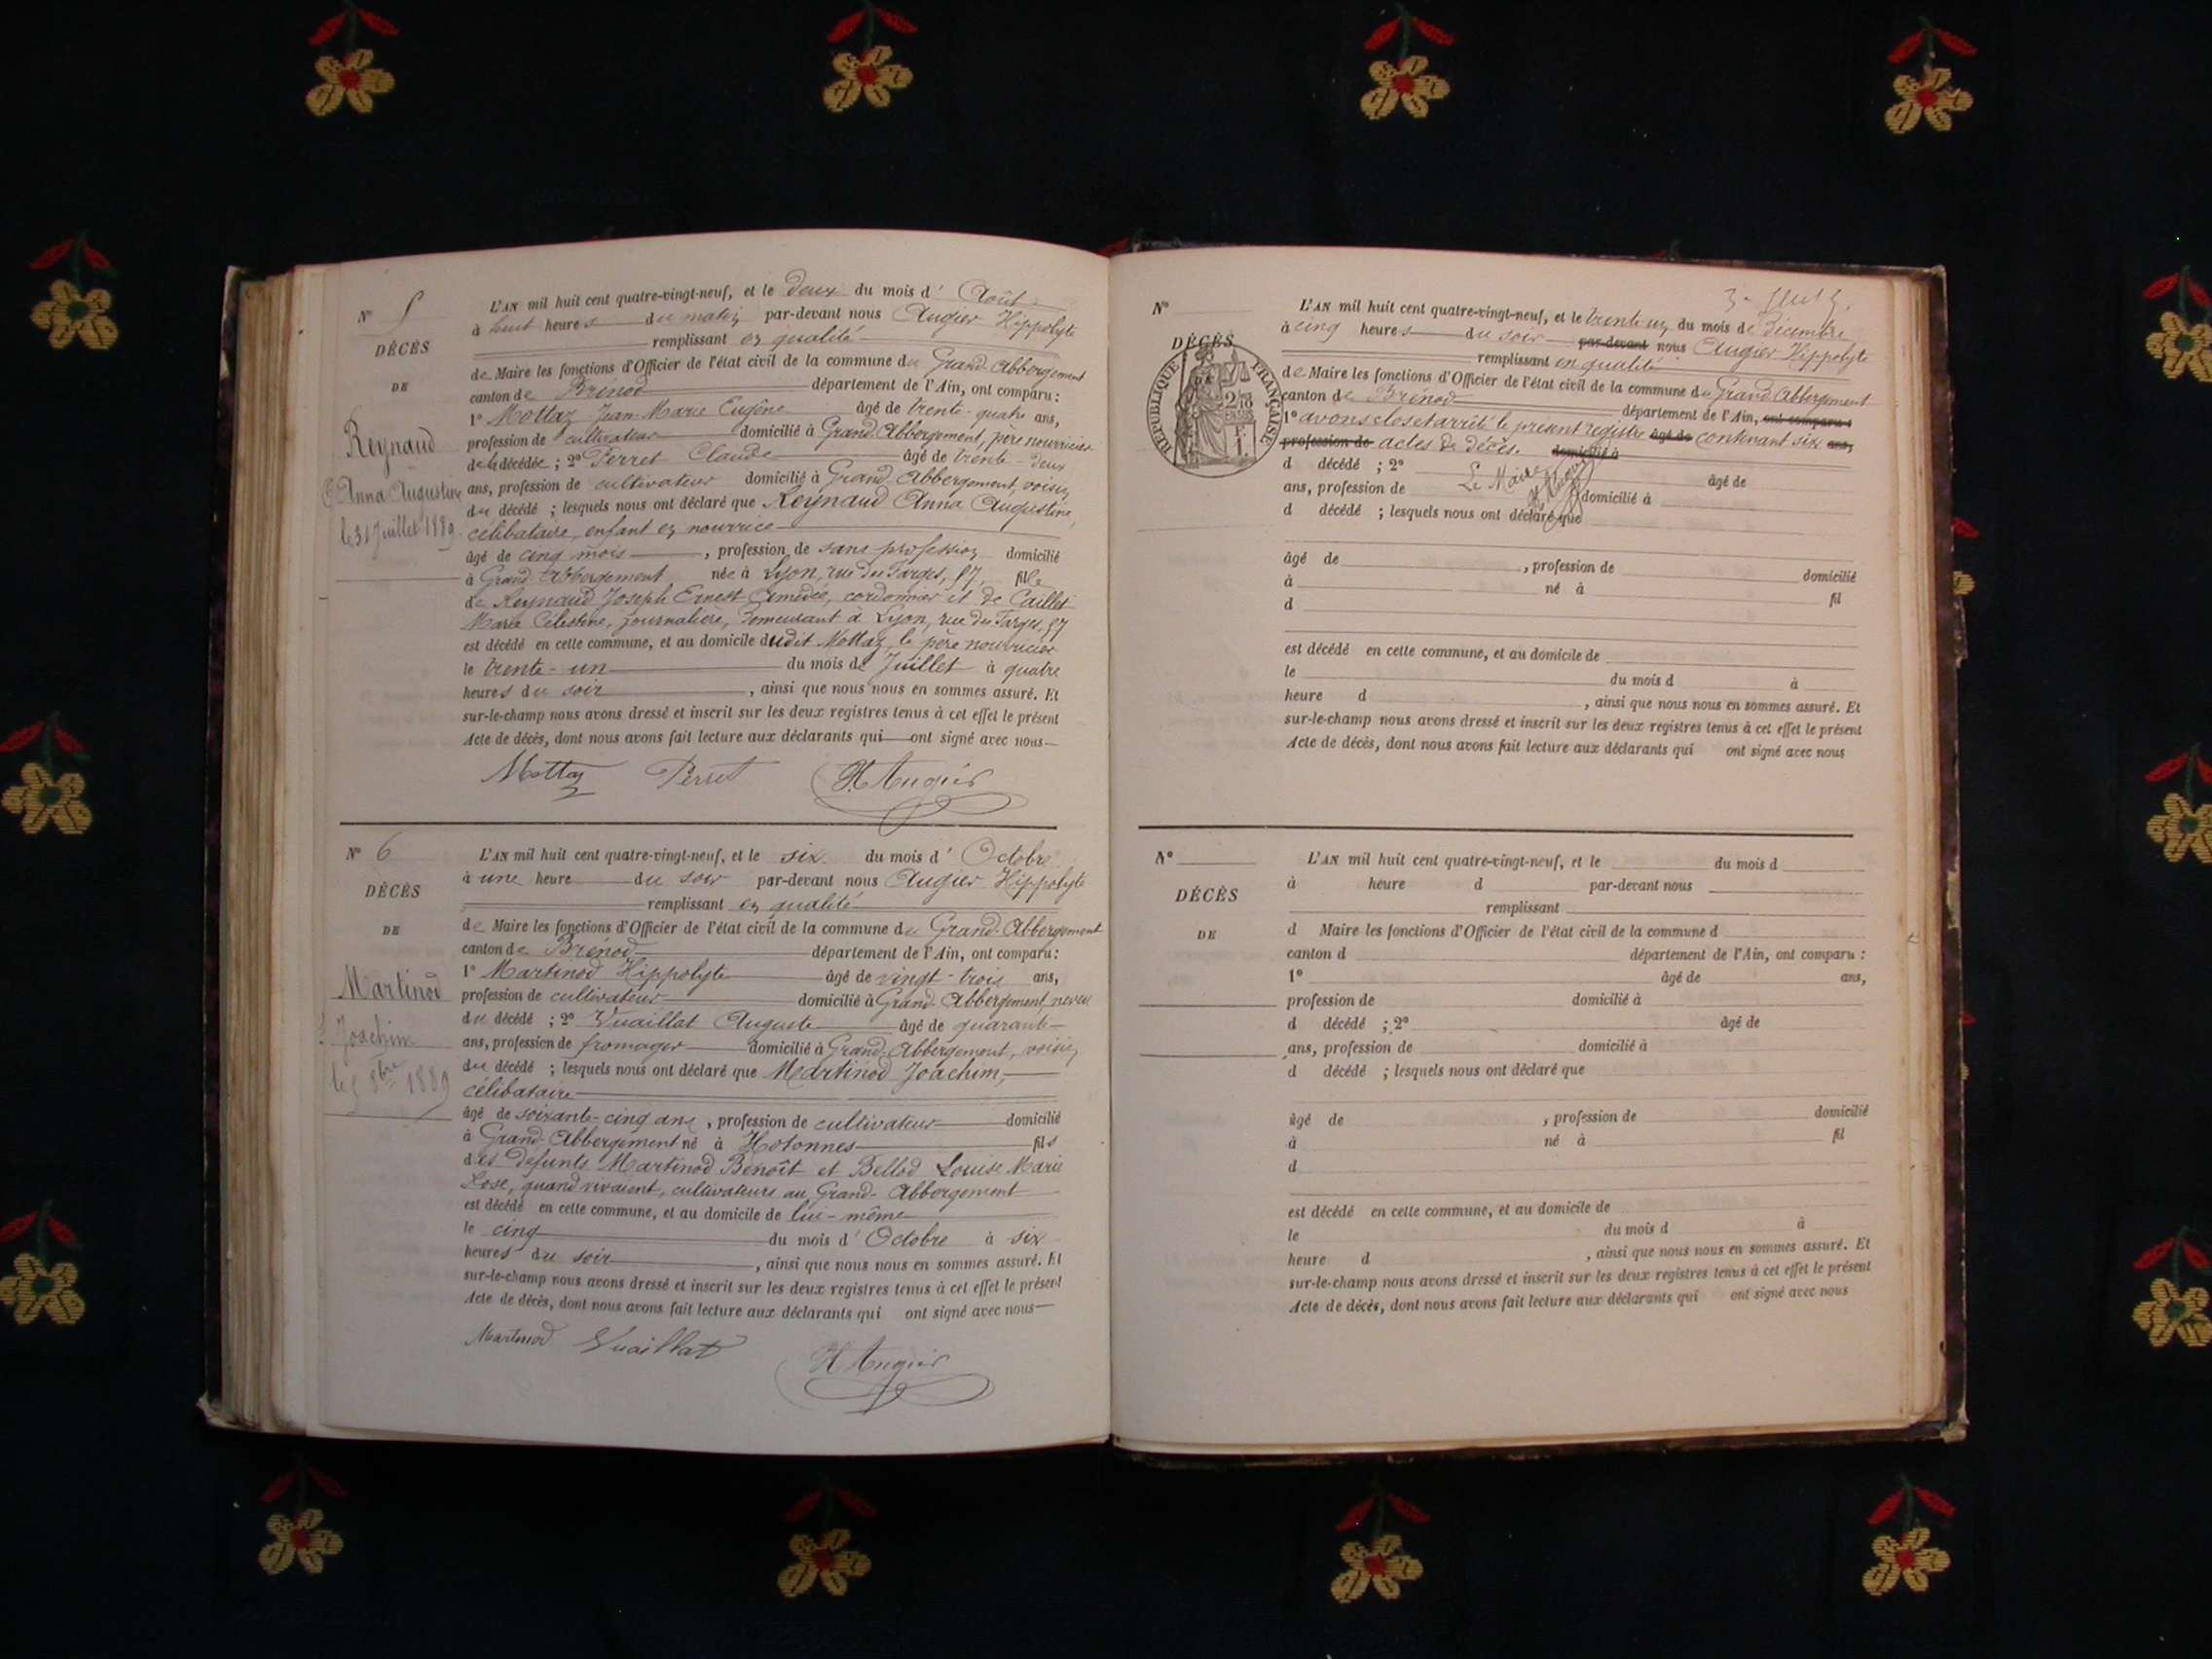 N° 5
DÉCÈS
DE
Reynaud
Anna Augustine
le 31 Juillet 1889.
L'AN mil huit cent quatre-vingt-neuf, et le deux du mois d' Août
à huit heures du matin par-devant nous Augier Hippolyte
remplissant en qualité
de Maire les fonctions d'Officier de l'état civil de la commune du Grand-Abbergement
canton de Brénod département de l'Ain, ont comparu :
1° Mottaz Jean-Marie Eugène âgé de trente-quatre ans,
profession de cultivateur domicilié à Grand-Abbergement, père nourricier
de la décédée ; 2° Perret Claude âgé de trente-deux
ans, profession de cultivateur domicilié à Grand-Abbergement, voisin
du décédé ; lesquels nous ont déclaré que Reynaud Anna Augustine,
célibataire, enfant en nourrice
âgé de cinq mois, profession de sans profession domicilié
à Grand-Abbergement née à Lyon, rue des Farges, 57, fille
de Reynaud Joseph Ernest Amédée, cordonnier et de Caillet
Marie Célestine, journalière, demeurant à Lyon, rue des Farges, 57
est décédé en cette commune, et au domicile dudit Mottaz, le père nourricier
le trente-un du mois de Juillet à quatre
heures du soir, ainsi que nous nous en sommes assuré. Et
sur-le-champ nous avons dressé et inscrit sur les deux registres tenus à cet effet le présent
Acte de décès, dont nous avons fait lecture aux déclarants qui ont signé avec nous
Mottaz Perret H. Augier
N° 6
DÉCÈS
DE
Martinod
Joachim
le 5 8bre 1889
L'AN mil huit cent quatre-vingt-neuf, et le six du mois d' Octobre
à une heure du soir par-devant nous Augier Hippolyte
remplissant en qualité
de Maire les fonctions d'Officier de l'état civil de la commune du Grand-Abbergement
canton de Brénod département de l'Ain, ont comparu :
1° Martinod Hippolyte âgé de vingt-trois ans,
profession de cultivateur domicilié à Grand-Abbergement, neveu
du décédé ; 2° Vuaillat Auguste âgé de quarante
ans, profession de fromager domicilié à Grand-Abbergement, voisin
du décédé ; lesquels nous ont déclaré que Martinod Joachim,
célibataire
âgé de soixante-cinq ans, profession de cultivateur domicilié
à Grand-Abbergement né à Hotonnes fils
des défunts Martinod Benoît et Bellod Louise Marie
Rose, quand vivaient, cultivateurs au Grand-Abbergement
est décédé en cette commune, et au domicile de lui-même
le cinq du mois d' Octobre à six
heures du soir, ainsi que nous nous en sommes assuré. Et
sur-le-champ nous avons dressé et inscrit sur les deux registres tenus à cet effet le présent
Acte de décès, dont nous avons fait lecture aux déclarants qui ont signé avec nous
Martinod Vuaillat H. Augier
N°
DÉCÈS
DE
RÉPUBLIQUE FRANÇAISE
L'AN mil huit cent quatre-vingt-neuf, et le trente un du mois de décembre
à cinq heures du soir par-devant nous Augier Hippolyte
remplissant en qualité
de Maire les fonctions d'Officier de l'état civil de la commune du Grand-Abbergement
canton de Brénod département de l'Ain, ont comparu :
1° avons clos et arrêté le présent registre âgé de contenant six ans,
profession de actes de décès. domicilié à
d décédé ; 2° Le Maire âgé de
ans, profession de H. Augier domicilié à
d décédé ; lesquels nous ont déclaré que
âgé de , profession de domicilié
à né à fil
d
est décédé en cette commune, et au domicile de
le du mois d à
heure d , ainsi que nous nous en sommes assuré. Et
sur-le-champ nous avons dressé et inscrit sur les deux registres tenus à cet effet le présent
Acte de décès, dont nous avons fait lecture aux déclarants qui ont signé avec nous
N°
DÉCÈS
DE
L'AN mil huit cent quatre-vingt-neuf, et le du mois d
à heure d par-devant nous
remplissant
d Maire les fonctions d'Officier de l'état civil de la commune d
canton d département de l'Ain, ont comparu :
1° âgé de ans,
profession de domicilié à
d décédé ; 2° âgé de
ans, profession de domicilié à
d décédé ; lesquels nous ont déclaré que
âgé de , profession de domicilié
à né à fil
d
est décédé en cette commune, et au domicile de
le du mois d à
heure d , ainsi que nous nous en sommes assuré. Et
sur-le-champ nous avons dressé et inscrit sur les deux registres tenus à cet effet le présent
Acte de décès, dont nous avons fait lecture aux déclarants qui ont signé avec nous